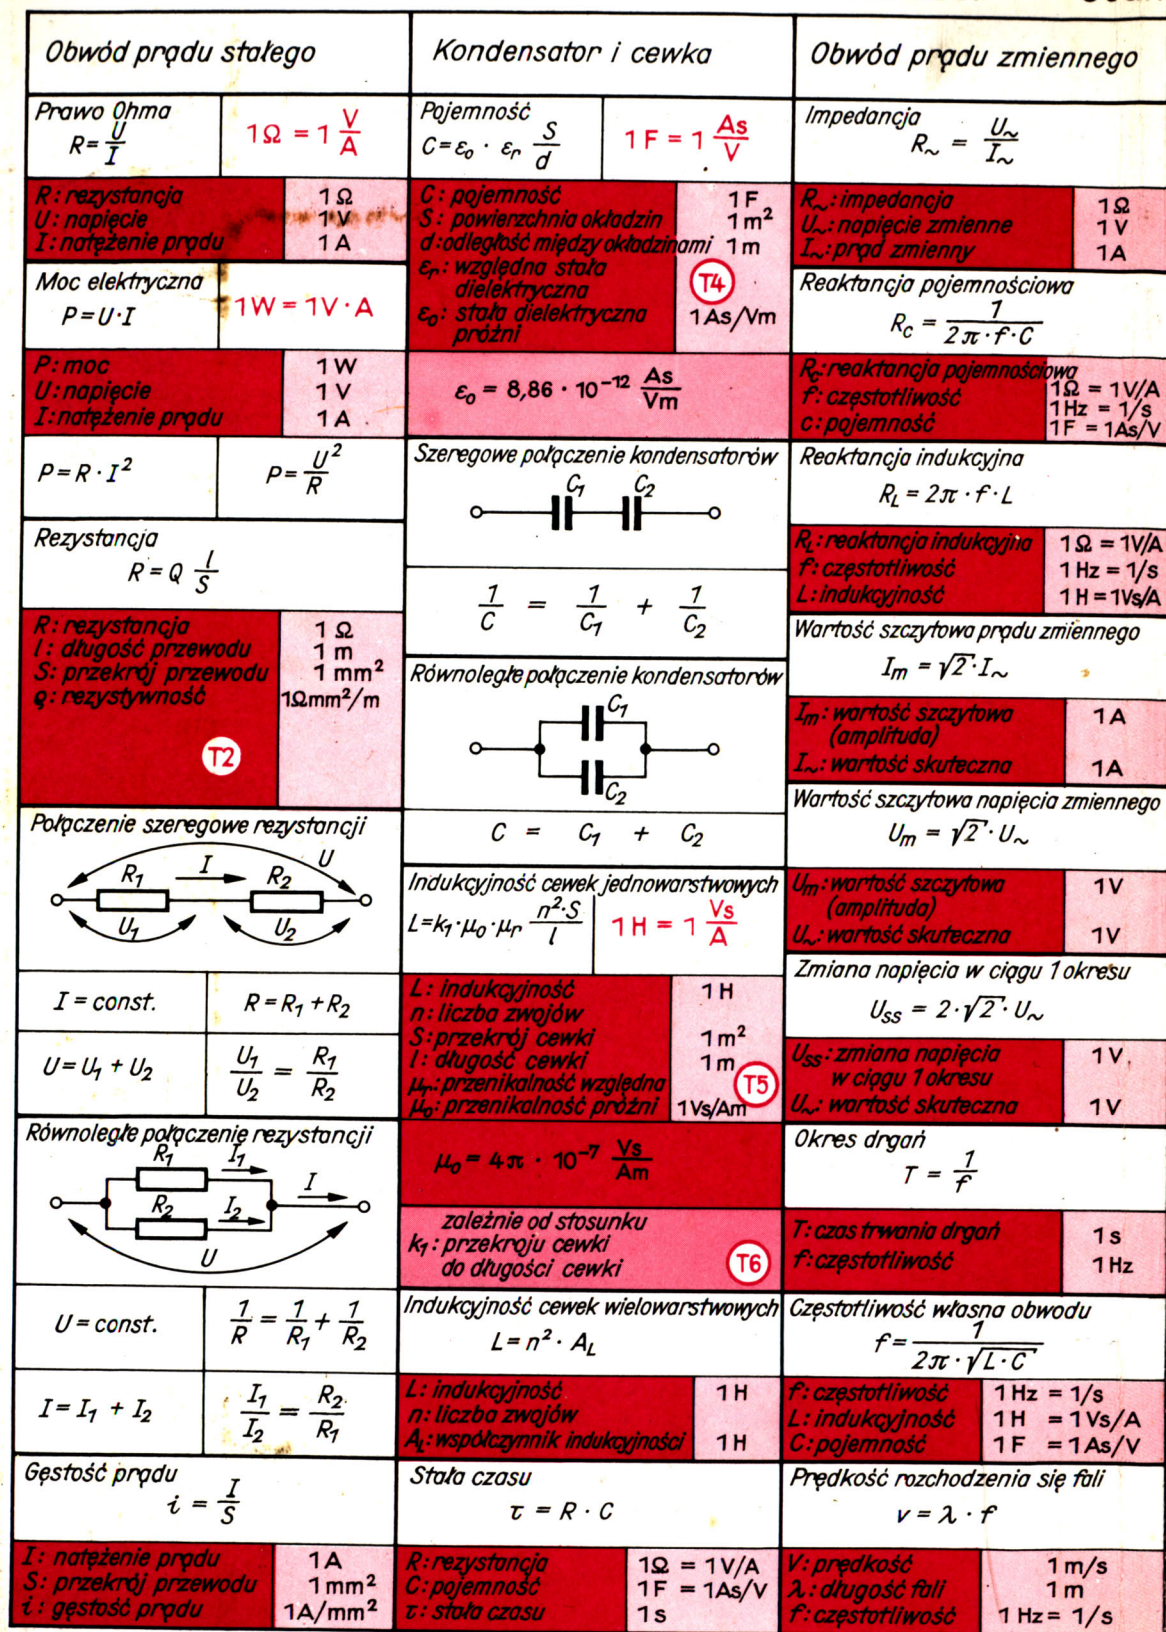 Obwód prądu stałego
Prawo Ohma
R = U/I
1Ω = 1 V/A
R: rezystancja 1Ω
U: napięcie 1V
I: natężenie prądu 1A
Moc elektryczna
P = U·I
1W = 1V·A
P: moc 1W
U: napięcie 1V
I: natężenie prądu 1A
P = R · I²
P = U²/R
Rezystancja
R = Q l/S
R: rezystancja 1Ω
l: długość przewodu 1m
S: przekrój przewodu 1mm²
ϱ: rezystywność 1Ωmm²/m
T2
Połączenie szeregowe rezystancji
U
R₁ I R₂
U₁ U₂
I = const.
R = R₁ + R₂
U = U₁ + U₂
U₁/U₂ = R₁/R₂
Równoległe połączenie rezystancji
R₁ I₁
I
R₂ I₂
U
U = const.
1/R = 1/R₁ + 1/R₂
I = I₁ + I₂
I₁/I₂ = R₂/R₁
Gęstość prądu
i = I/S
I: natężenie prądu 1A
S: przekrój przewodu 1mm²
i: gęstość prądu 1A/mm²
Kondensator i cewka
Pojemność
C = ε₀ · εᵣ S/d
1F = 1 As/V
C: pojemność 1F
S: powierzchnia okładzin 1m²
d: odległość między okładzinami 1m
εᵣ: względna stała
dielektryczna
T4
ε₀: stała dielektryczna 1As/Vm
próżni
ε₀ = 8,86 · 10⁻¹² As/Vm
Szeregowe połączenie kondensatorów
C₁ C₂
1/C = 1/C₁ + 1/C₂
Równoległe połączenie kondensatorów
C₁
C₂
C = C₁ + C₂
Indukcyjność cewek jednowarstwowych
L = k₁·μ₀·μᵣ n²·S/l
1H = 1 Vs/A
L: indukcyjność 1H
n: liczba zwojów
S: przekrój cewki 1m²
l: długość cewki 1m
μᵣ: przenikalność względna
T5
μ₀: przenikalność próżni 1Vs/Am
μ₀ = 4π · 10⁻⁷ Vs/Am
zależnie od stosunku
k₁: przekroju cewki
do długości cewki
T6
Indukcyjność cewek wielowarstwowych
L = n² · A_L
L: indukcyjność 1H
n: liczba zwojów
A_L: współczynnik indukcyjności 1H
Stała czasu
τ = R · C
R: rezystancja 1Ω = 1V/A
C: pojemność 1F = 1As/V
τ: stała czasu 1s
Obwód prądu zmiennego
Impedancja
R~ = U~/I~
R~: impedancja 1Ω
U~: napięcie zmienne 1V
I~: prąd zmienny 1A
Reaktancja pojemnościowa
R_C = 1/(2π·f·C)
R_C: reaktancja pojemnościowa
1Ω = 1V/A
f: częstotliwość 1Hz = 1/s
c: pojemność 1F = 1As/V
Reaktancja indukcyjna
R_L = 2π · f · L
R_L: reaktancja indukcyjna 1Ω = 1V/A
f: częstotliwość 1Hz = 1/s
L: indukcyjność 1H = 1Vs/A
Wartość szczytowa prądu zmiennego
I_m = √2 · I~
I_m: wartość szczytowa 1A
(amplituda)
I~: wartość skuteczna 1A
Wartość szczytowa napięcia zmiennego
U_m = √2 · U~
U_m: wartość szczytowa 1V
(amplituda)
U~: wartość skuteczna 1V
Zmiana napięcia w ciągu 1 okresu
U_SS = 2·√2 · U~
U_SS: zmiana napięcia 1V
w ciągu 1 okresu
U~: wartość skuteczna 1V
Okres drgań
T = 1/f
T: czas trwania drgań 1s
f: częstotliwość 1Hz
Częstotliwość własna obwodu
f = 1/(2π·√(L·C))
f: częstotliwość 1Hz = 1/s
L: indukcyjność 1H = 1Vs/A
C: pojemność 1F = 1As/V
Prędkość rozchodzenia się fali
v = λ · f
V: prędkość 1m/s
λ: długość fali 1m
f: częstotliwość 1Hz = 1/s